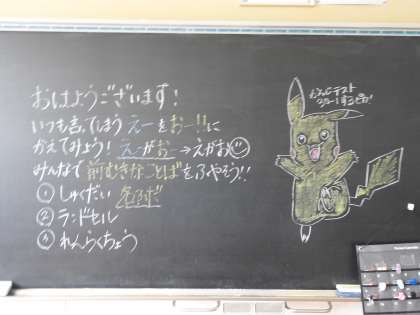 おはようございます!
いつも言ってしまう えーを おー!!に
かえてみよう! えーが おー→えがお
みんなで 前むきなことばを ふやそう!!
① しゅくだい
② ランドセル
③ れんらくちょう
テスト